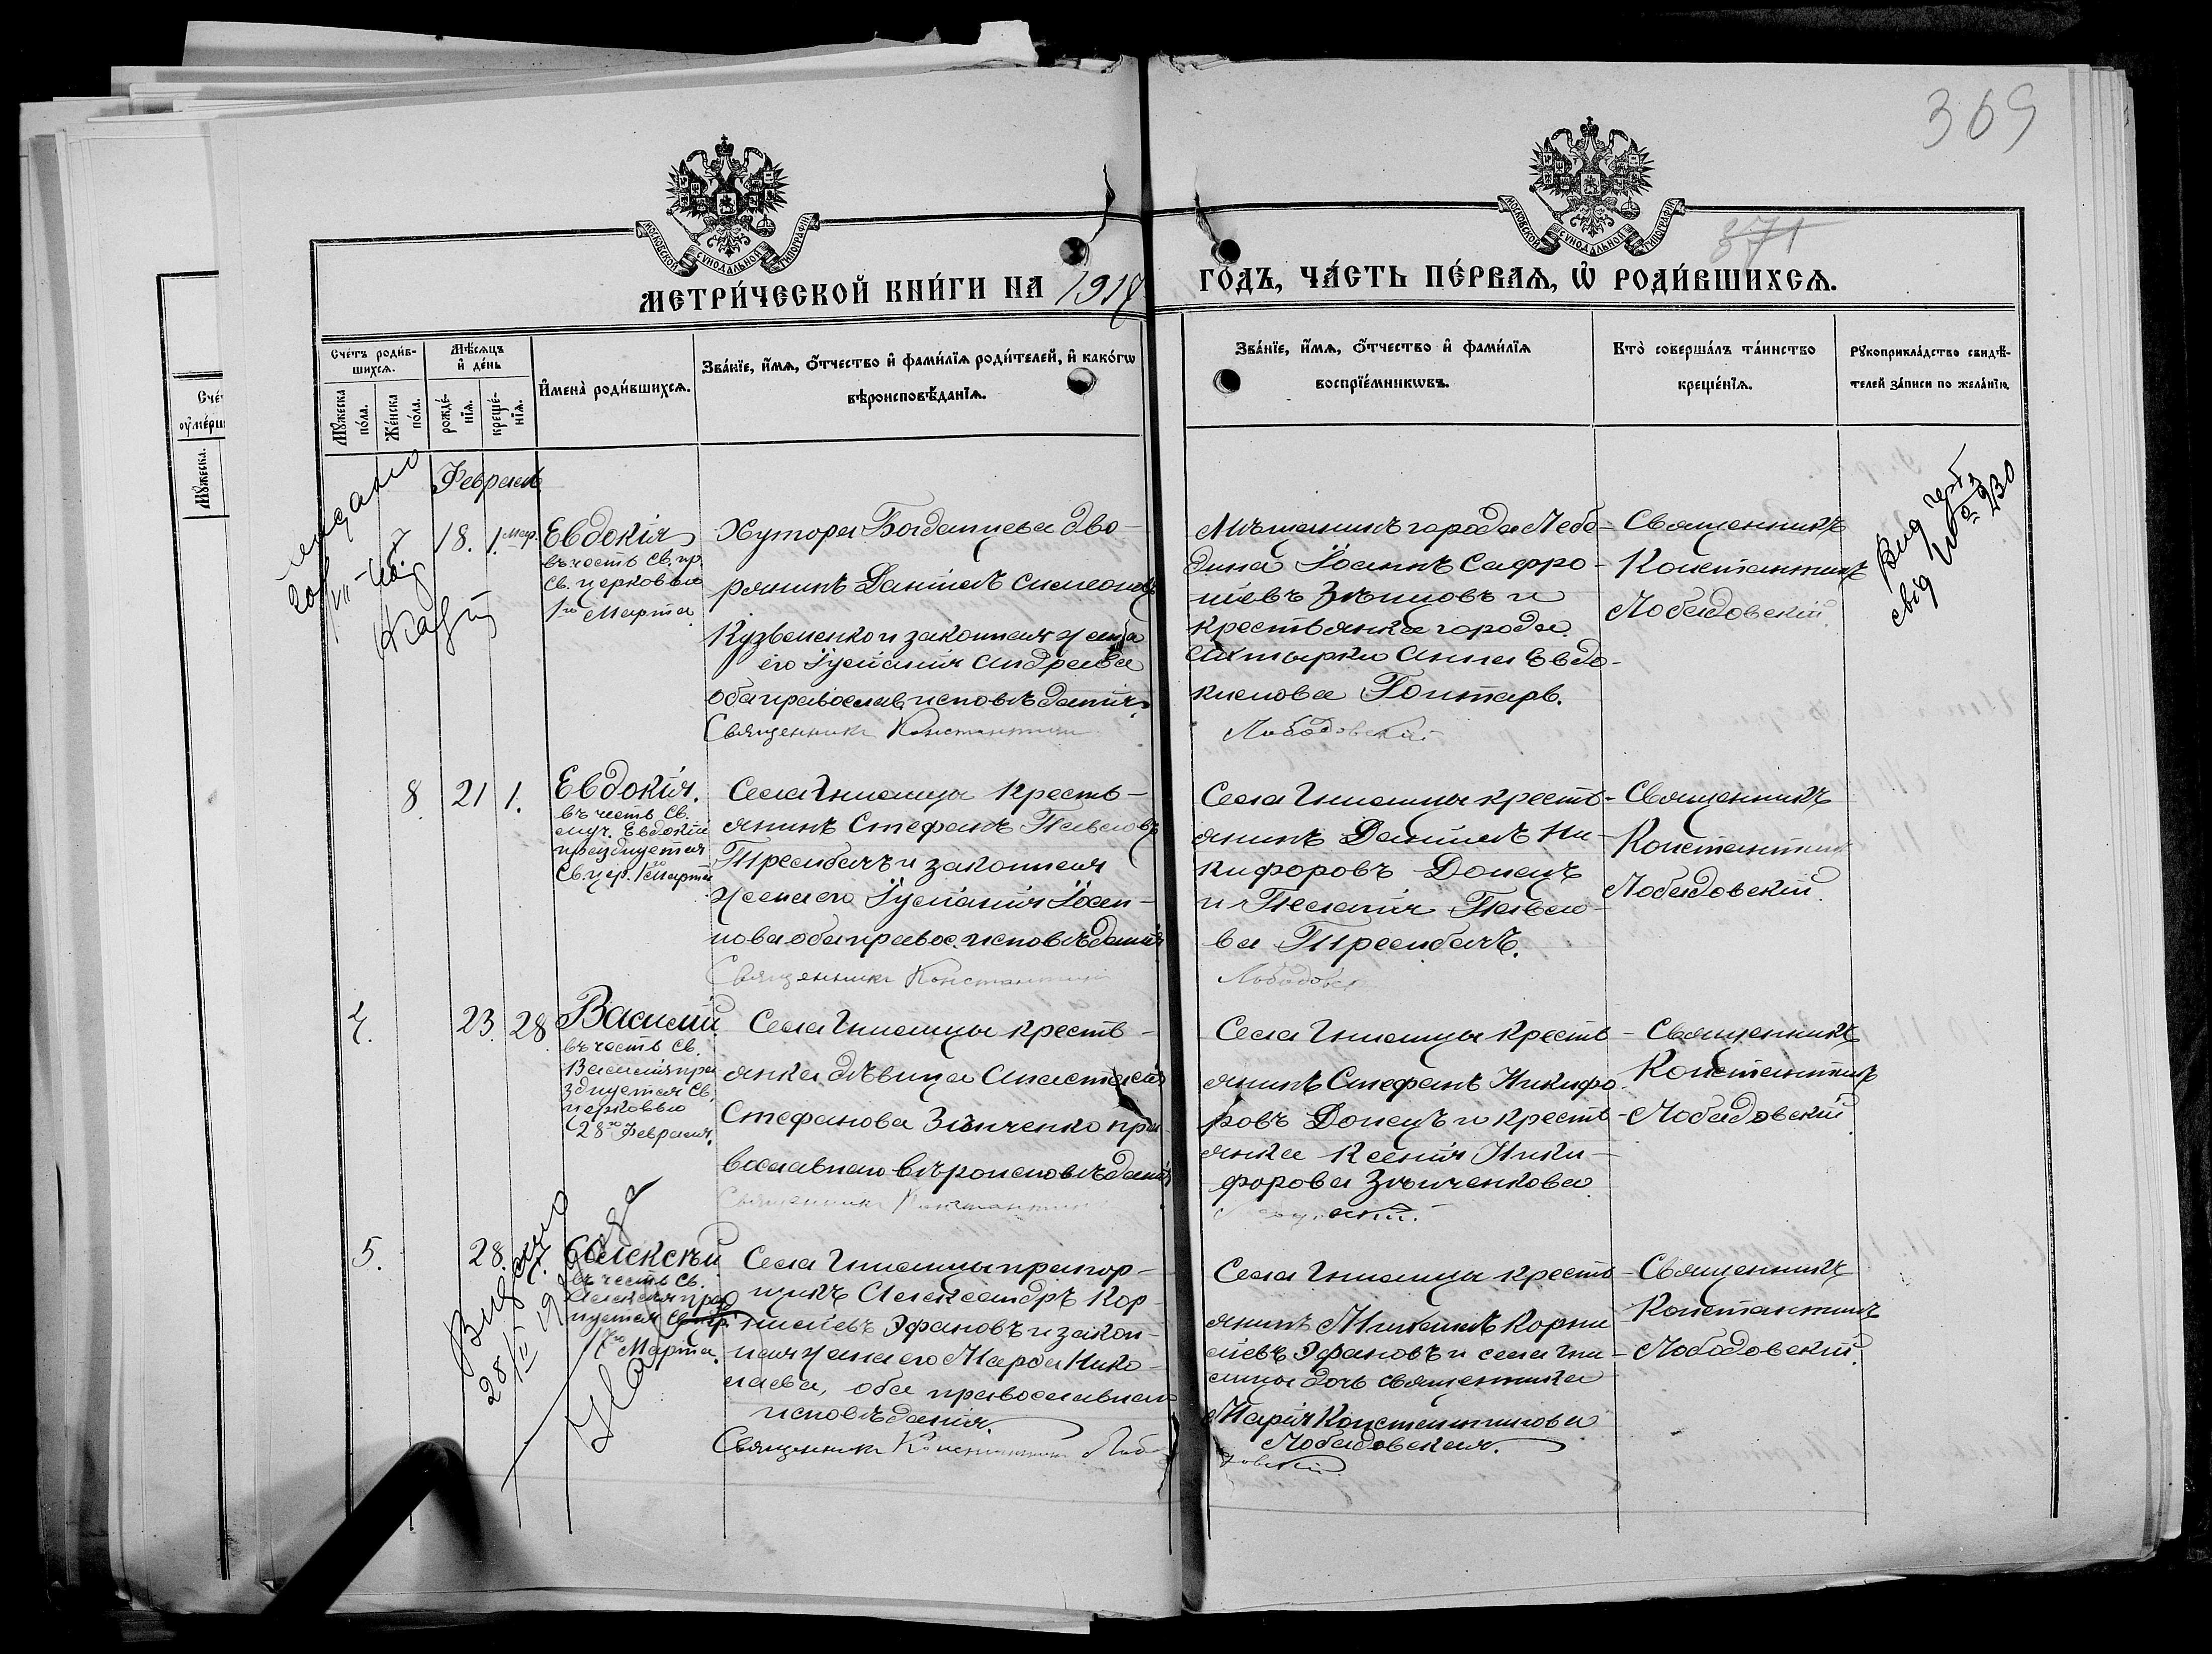 369
371
МОСКОВСКОЙ СУНОДАЛЬНОЙ ТИПОГРАФІИ
МОСКОВСКОЙ СУНОДАЛЬНОЙ ТИПОГРАФІИ
МЕТРИ́ЧЕСКОЙ КНИ́ГИ НА 1917 ГО́ДЪ, ЧА́СТЬ ПЕ́РВАѦ, Ѡ҆ РОДИ́ВШИХСѦ.
Сче́тъ роди́в-
шихсѧ.
Мꙋ́жеска по́ла.
Же́нска по́ла.
Мѣ́сѧцъ и҆ де́нь
рожде́-
нїѧ.
креще́-
нїѧ.
И҆мена̀ роди́вшихсѧ.
Зва́нїе, и҆́мѧ, ѻ҆́тчество и҆ фами́лїѧ роди́телей, и҆ како́гѡ
вѣроисповѣ́данїѧ.
Зва́нїе, и҆́мѧ, ѻ҆́тчество и҆ фами́лїѧ
воспрїе́мникѡвъ.
Кто̀ соверша́лъ та́инство
креще́нїѧ.
Рꙋкоприкла́дство свидѣ́-
телей за́писи по жела́нїю.
Февраль
7
18. 1. Мар.
Евдокія
въ честь св. пр.
св. церковью
1го Марта.
Хутора Богданцева дво-
рянинъ Даніилъ Симеоновъ
Кузьменко и законная жена
его Іуліанія Андреева
оба православ. исповѣданія.
Священникъ Константинъ
Мѣщанинъ города Лебе-
дина Іоаннъ Сафро-
ніевъ Зѣнновъ и
крестьянка города
Ахтырки Анна Евдо-
кимова Гонтарь.
Лободовскій
Священникъ
Константинъ
Лободовскій.
Вид
свід № 230
8. 21 1.
Евдокія.
въ честь св.
муч. Евдокіи
празднуемая
св. цер. 1го Марта
Села Гнилицы кресть-
янинъ Стефанъ Павловъ
Трембачъ и законная
жена его Іуліанія Іоси-
пова оба правос. исповѣданія
Священникъ Константинъ
Села Гнилицы кресть-
янинъ Даніилъ Ни-
кифоровъ Донецъ
и Пелагія Павло-
ва Трембачъ.
Лободовск
Священникъ
Константинъ
Лободовскій.
4. 23. 28.
Василій
въ честь св.
Василія пра
зднуемая св.
церковью
28го Февраля.
Села Гнилицы кресть-
янка дѣвица Анастасія
Стефанова Зинченко пра-
вославнаго вѣроисповѣданія
Священникъ Константинъ
Села Гнилицы кресть-
янинъ Стефанъ Никифо-
ровъ Донецъ и кресть-
янка Ксенія Ники-
форова Зѣнченкова
Священникъ
Константинъ
Лободовскій.
5. 28.
Алексѣй
въ честь св.
Алексія праз
нуемая св. цер.
17го Марта.
Видано
28/II
Села Гнилицы прапор-
щикъ Александръ Кор-
ниліевъ Эфановъ и закон-
ная жена его Марфа Нико-
лаева, оба православнаго
исповѣданія.
Священникъ Константинъ Лобо
довскій
Села Гнилицы кресть-
янинъ Михаилъ Корни-
ліевъ Эфановъ и села Гни-
лицы дочь священника
Марія Константинова
Лободовская.
Священникъ
Константинъ
Лободовскій.